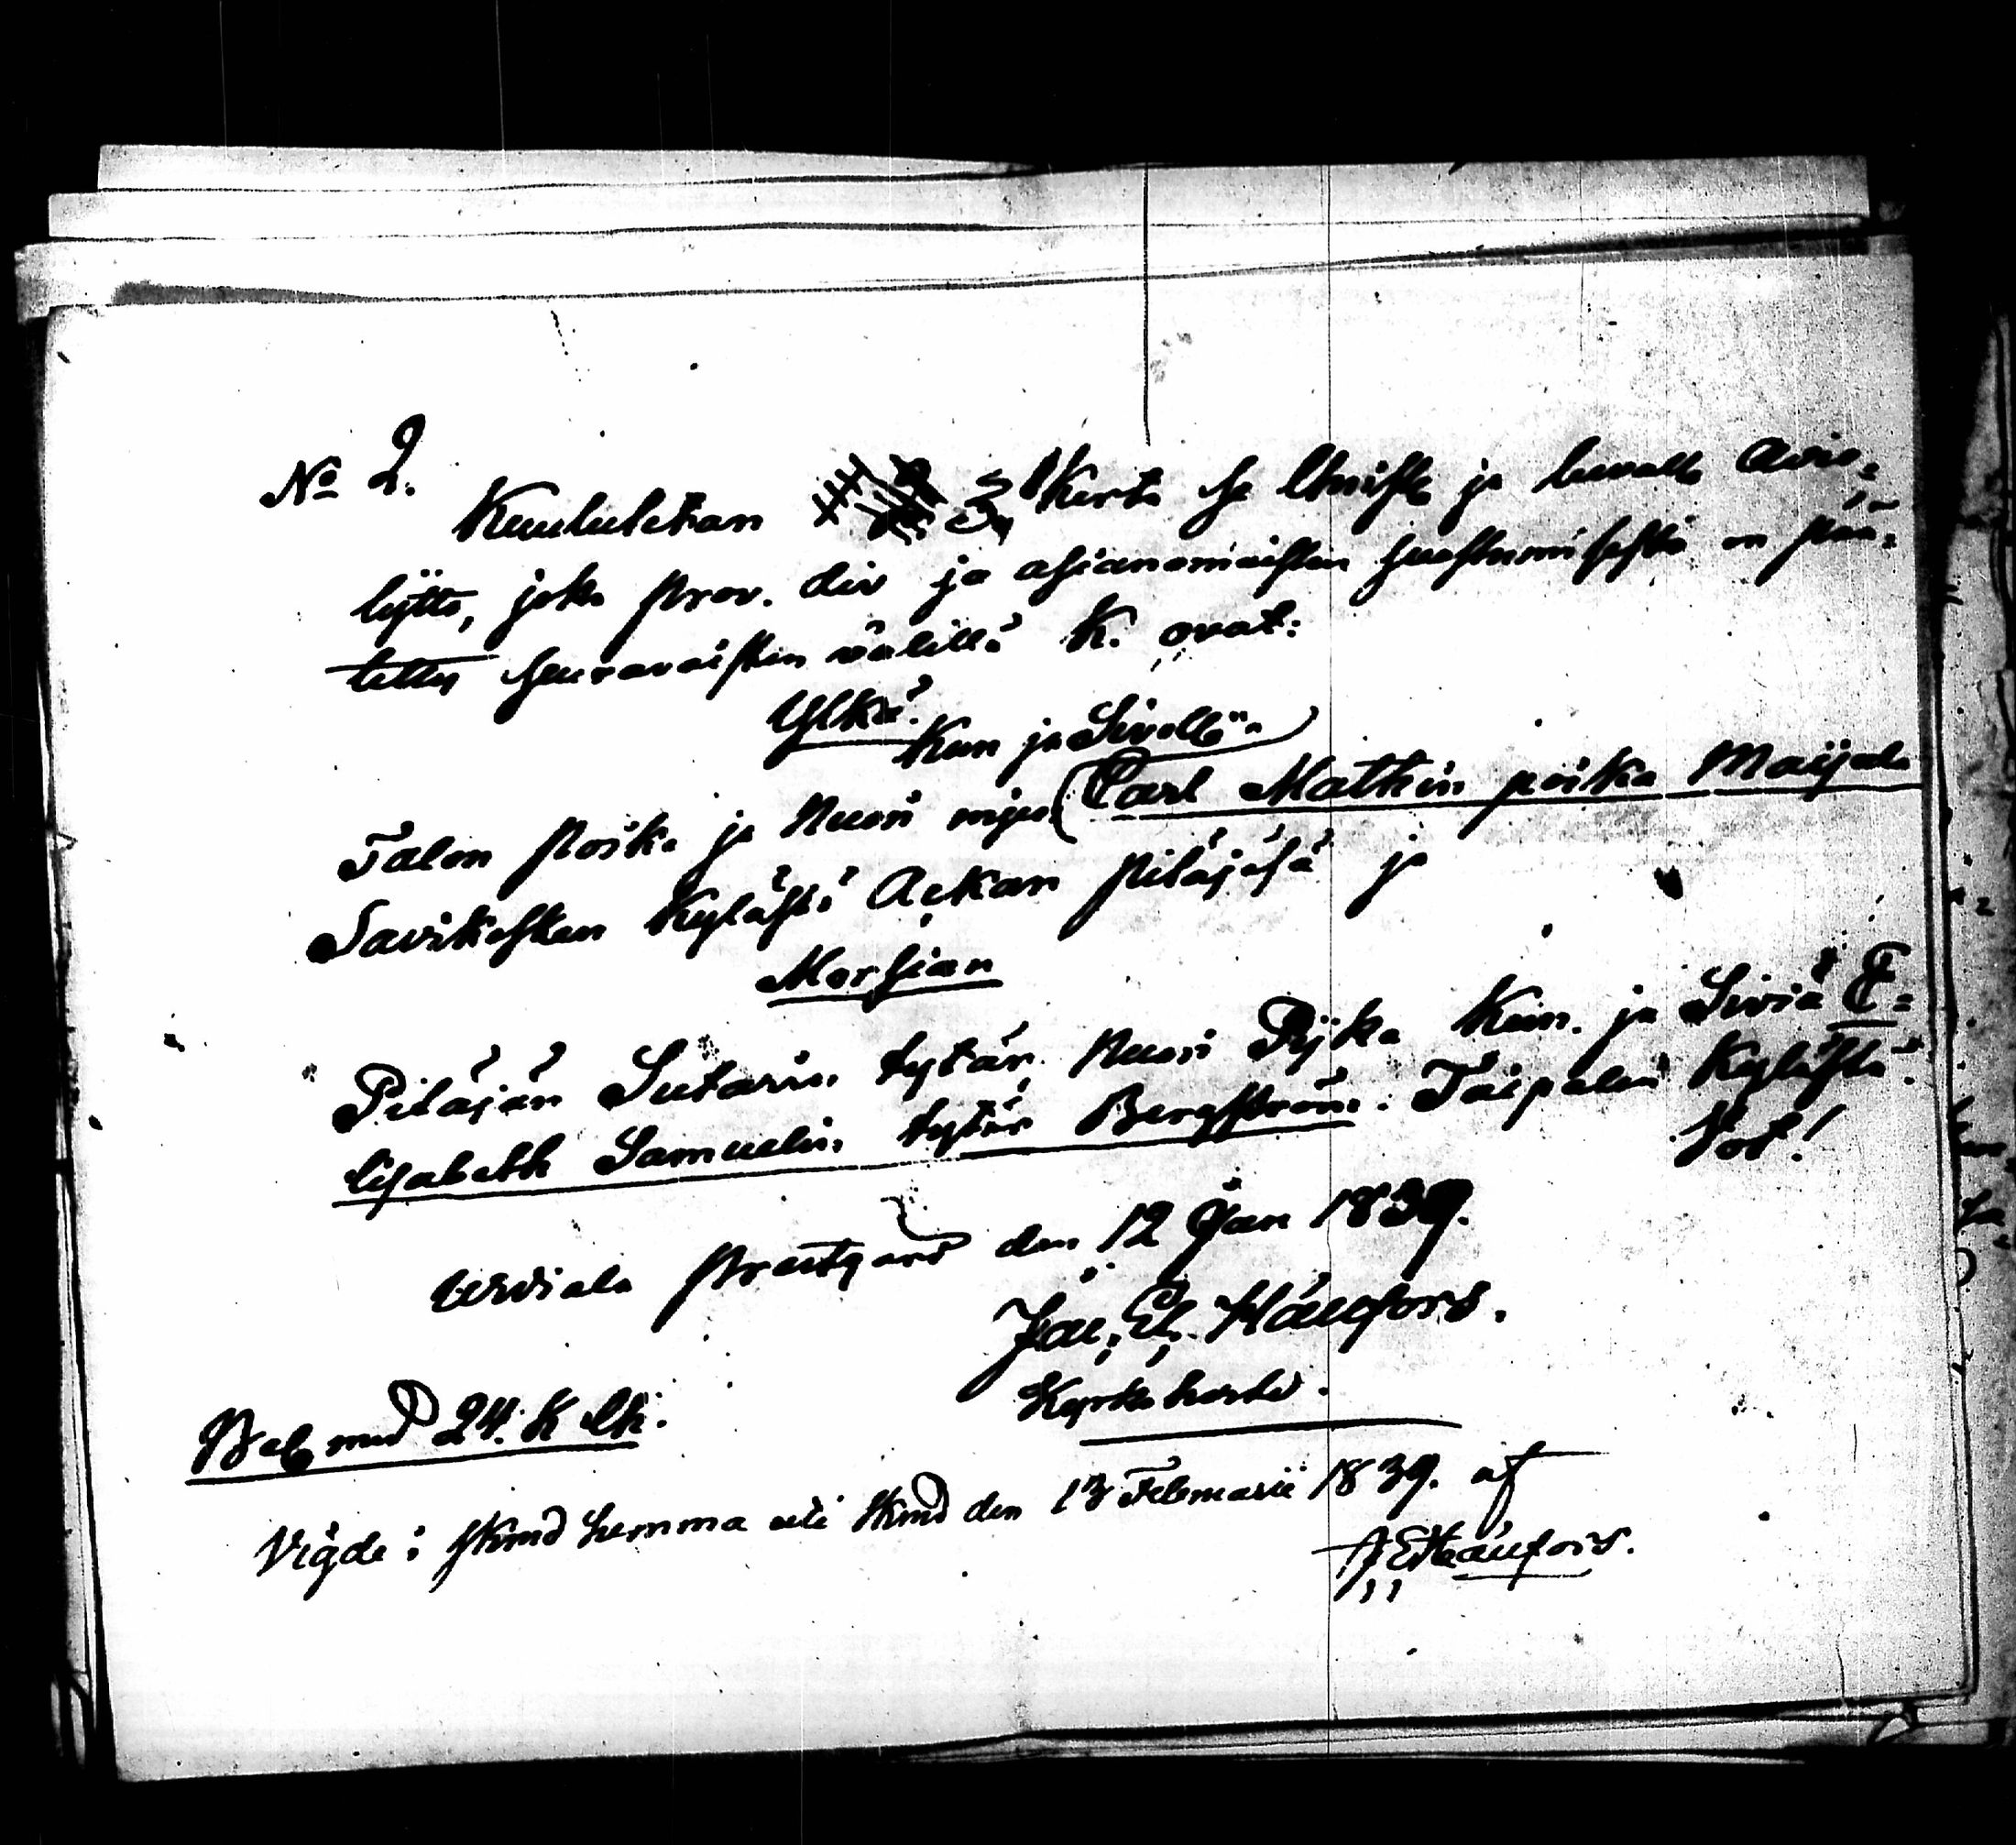 No 2.
Kuuluteta​n 3. Kerta se Christ. ja luvall. Avio-
lijtto, joka prov. div ja asianomaisten suostumisesta on pää-
tetty seuravaisten välillä K. ovat:
Ylkä.
Kun ja Sivollä
Talon poika ja Nuori mjes Carl Mathin poika Maijala
Savikosken Kylästä Ackan pitäjäsä ja
Morsian
Pitäjän Sutarin tytär Nuori Pijka Kun. ja Siviä E-
lisabeth Samuelin tytär Bergström. Taipalen Kylästä.
Tot!
Urdiala Prestgård den 12 Jan 1839.
Jac. Ed. Häufors.
Kyrkoherde.
Bet. med 24. K
Vigde i hemma den 13 Februarii 1839. af
J E Häufors.